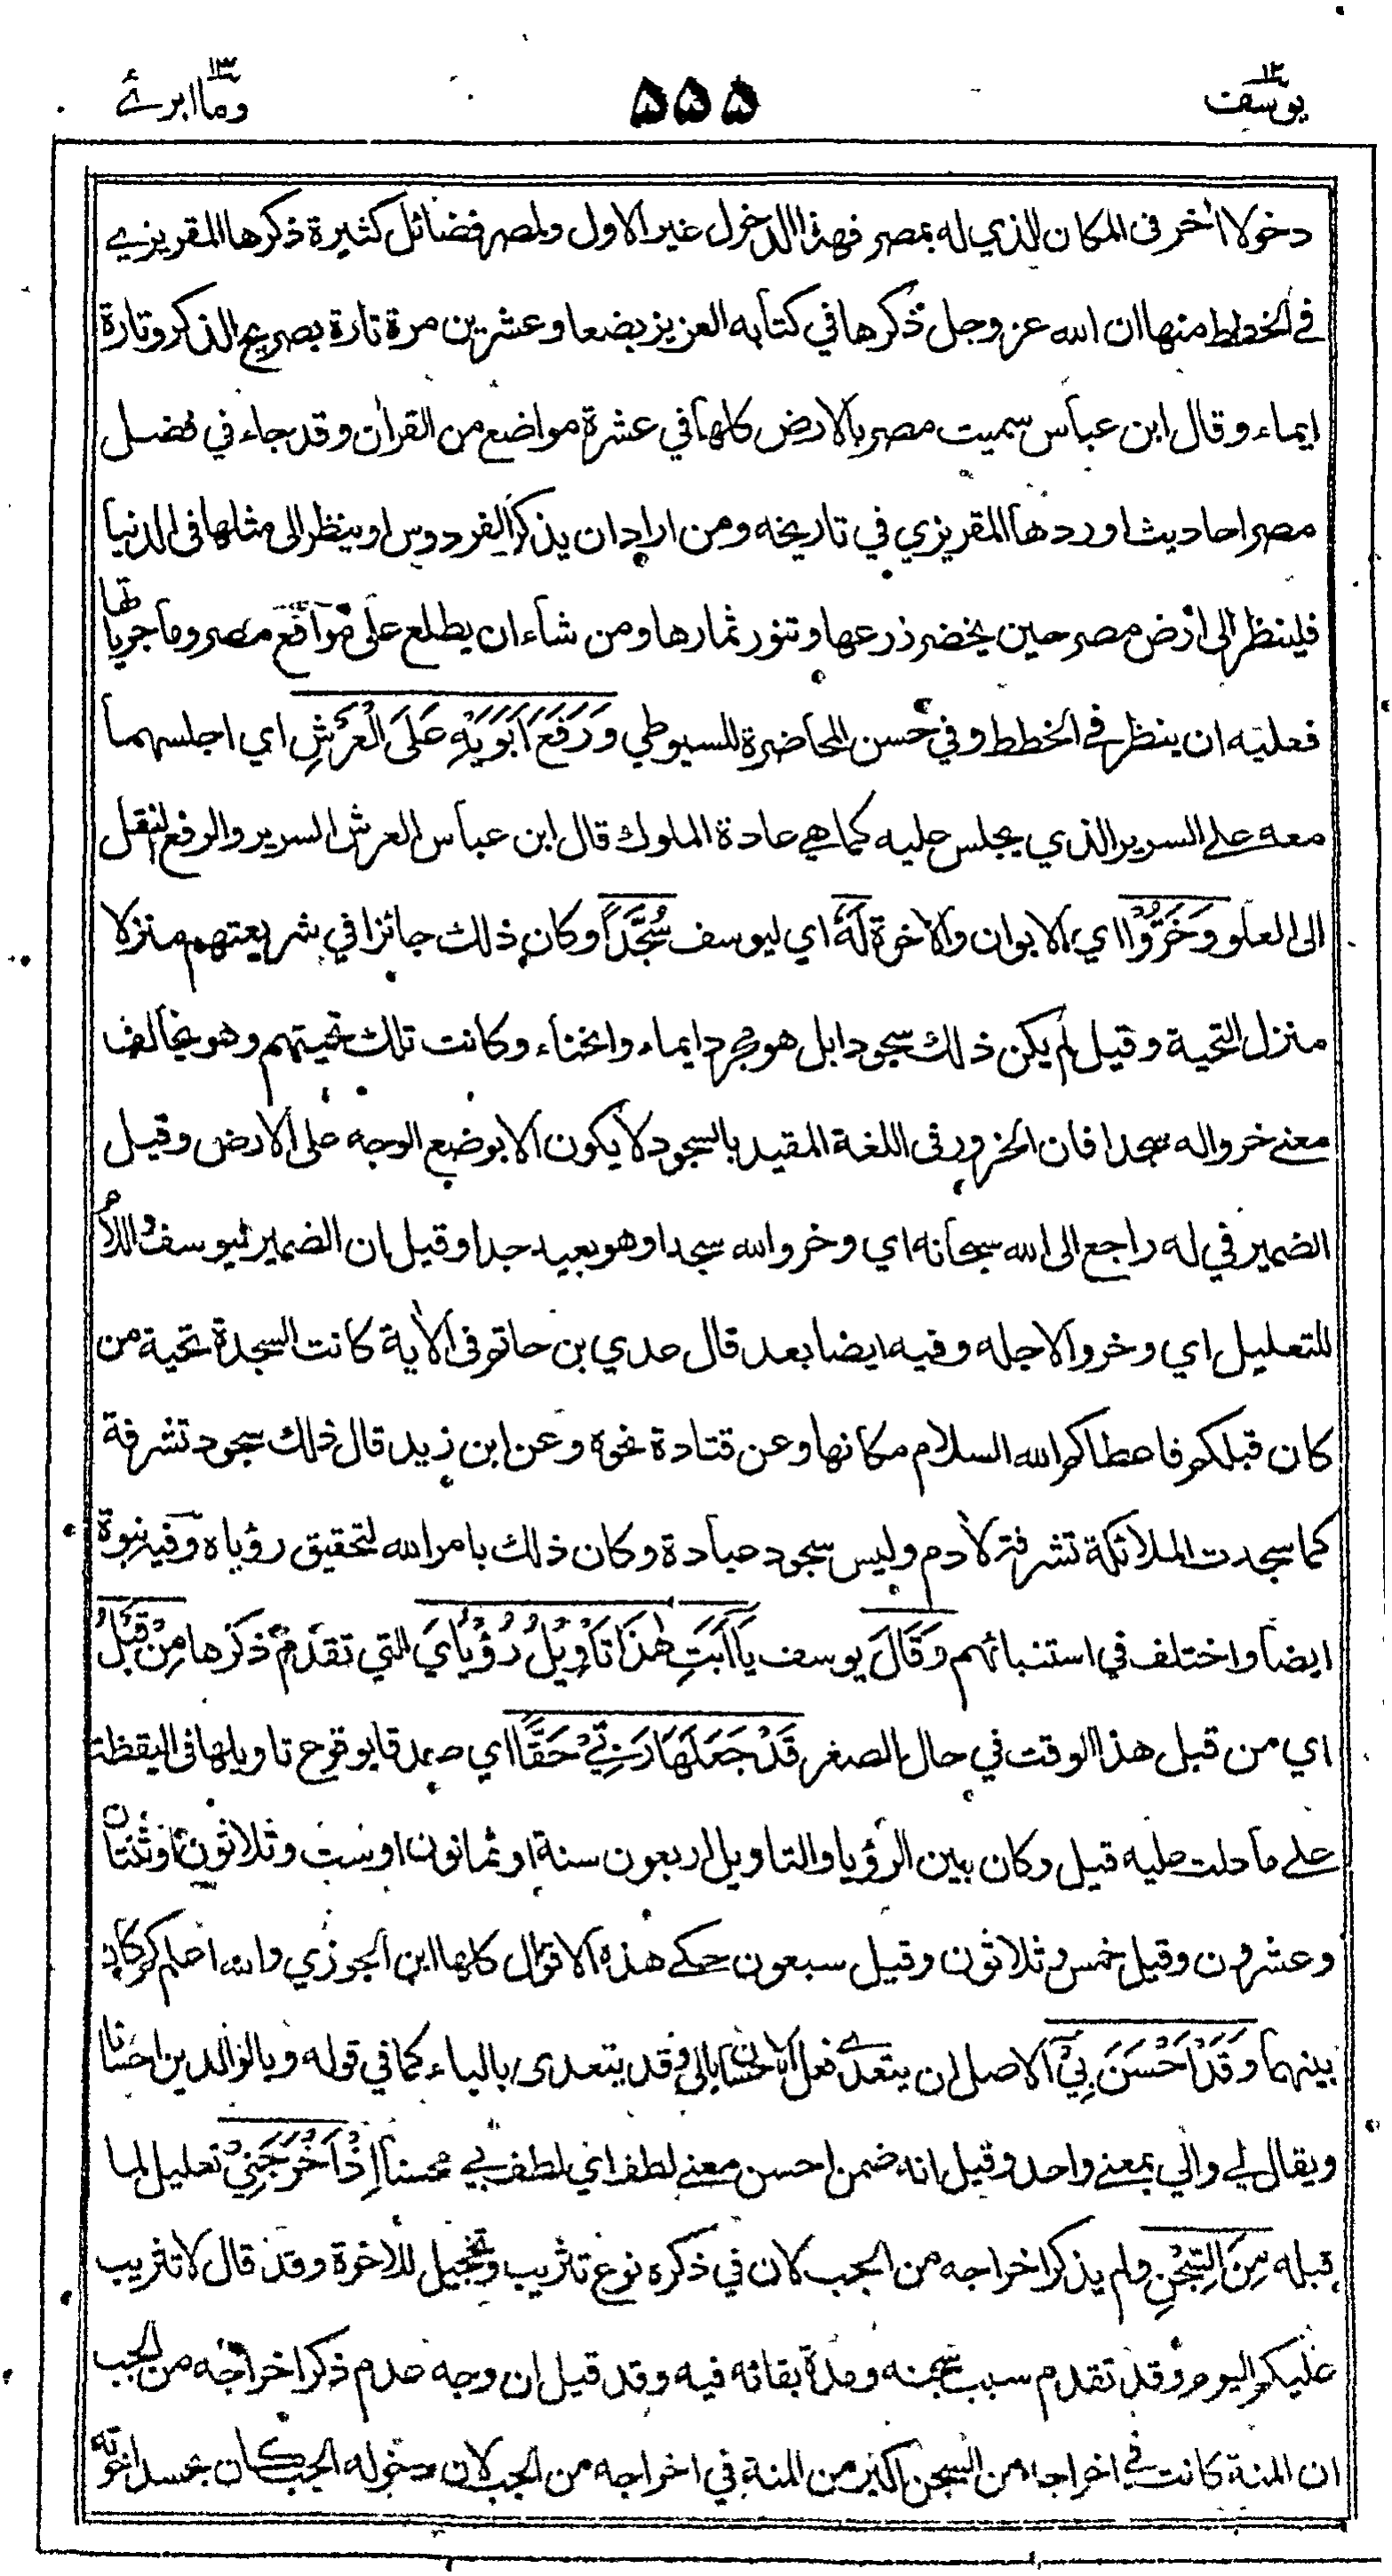 يوسف ١٢
٥٥٥
وما ابرئ ١٣
دخولا اٰخر فى المكان الذي له بمصر فهذا الدخول غير الاول ولمصر فضائل كثيرة ذكرها المقريزي
في الخطط منها ان الله عز وجل ذكرها في كتابه العزيز بضعا وعشرين مرة تارة بصريح الذكر وتارة
ايماء وقال ابن عباس سميت مصر بالارض كلها في عشرة مواضع من القراٰن وقد جاء في فضل
مصر احاديث اوردها المقريزي في تاريخه ومن اراد ان يذكر الفردوس او ينظر الى مثلها فى الدنيا
فلينظر الى ارض مصر حين يخضر زرعها وتنور ثمارها ومن شاء ان يطلع على مواقع مصر وما جرياتها
فعليه ان ينظر في الخطط وفي حسن المحاضرة للسيوطي وَرَفَعَ اَبَوَيْهِ عَلَى الْعَرْشِ اي اجلسهما
معه على السرير الذي يجلس عليه كما هي عادة الملوك قال ابن عباس العرش السرير والرفع النقل
الى العلو وَخَرُّوْا اي الابوان والاخوة لَهٗ اي ليوسف سُجَّدًا وكان ذلك جائزا في شريعتهم منزلا
منزل التحية وقيل لم يكن ذلك سجودا بل هو مجرد ايماء وانحناء وكانت تلك تحيتهم وهو يخالف
معنى خروا له سجدا فان الخرور فى اللغة المقيد بالسجود لا يكون الا بوضع الوجه على الارض وقيل
الضمير في له راجع الى الله سبحانه اي وخروا لله سجدا وهو بعيد جدا وقيل ان الضمير ليوسف واللام
للتعليل اي وخروا لاجله وفيه ايضا بعد قال عدي بن حاتم فى الاٰية كانت السجدة تحية من
كان قبلكم فاعطاكم الله السلام مكانها وعن قتادة نحوه وعن ابن زيد قال ذلك سجود تشرفة
كما سجدت الملائكة تشرفة لاٰدم وليس سجود عبادة وكان ذلك بامر الله لتحقيق رؤياه وفيه نبوة
ايضا واختلف في استنبائهم وَقَالَ يوسف يَا اَبَتِ هٰذَا تَاْوِيْلُ رُؤْيَايَ التي تقدم ذكرها مِنْ قَبْلُ
اي من قبل هذا الوقت في حال الصغر قَدْ جَعَلَهَا رَبِّيْ حَقًّا اي صدقا بوقوع تاويلها فى اليقظة
على ما دلت عليه قيل وكان بين الرؤيا والتاويل اربعون سنة او ثمانون او ست وثلاثون او ثنتان
وعشرون وقيل خمس وثلاثون وقيل سبعون حكى هذه الاقوال كلها ابن الجوزي والله اعلم كم كان
بينهما وَقَدْ اَحْسَنَ بِيْ الاصل ان يتعدى فعل الاحسان بالى وقد يتعدى بالباء كما في قوله وبالوالدين احسانا
ويقال لي والي بمعنى واحد وقيل انه ضمن احسن معنى لطف اي لطف بي محسنا اِذْ اَخْرَجَنِيْ تعليل لما
قبله مِنَ السِّجْنِ ولم يذكر اخراجه من الجب لان في ذكره نوع تثريب وتخجيل للاخوة وقد قال لا تثريب
عليكم اليوم وقد تقدم سبب سجنه ومدة بقائه فيه وقد قيل ان وجه عدم ذكر اخراجه من الجب
ان المنة كانت في اخراجه من السجن اكبر من المنة في اخراجه من الجب لان دخوله الجب كان بحسد اخوته